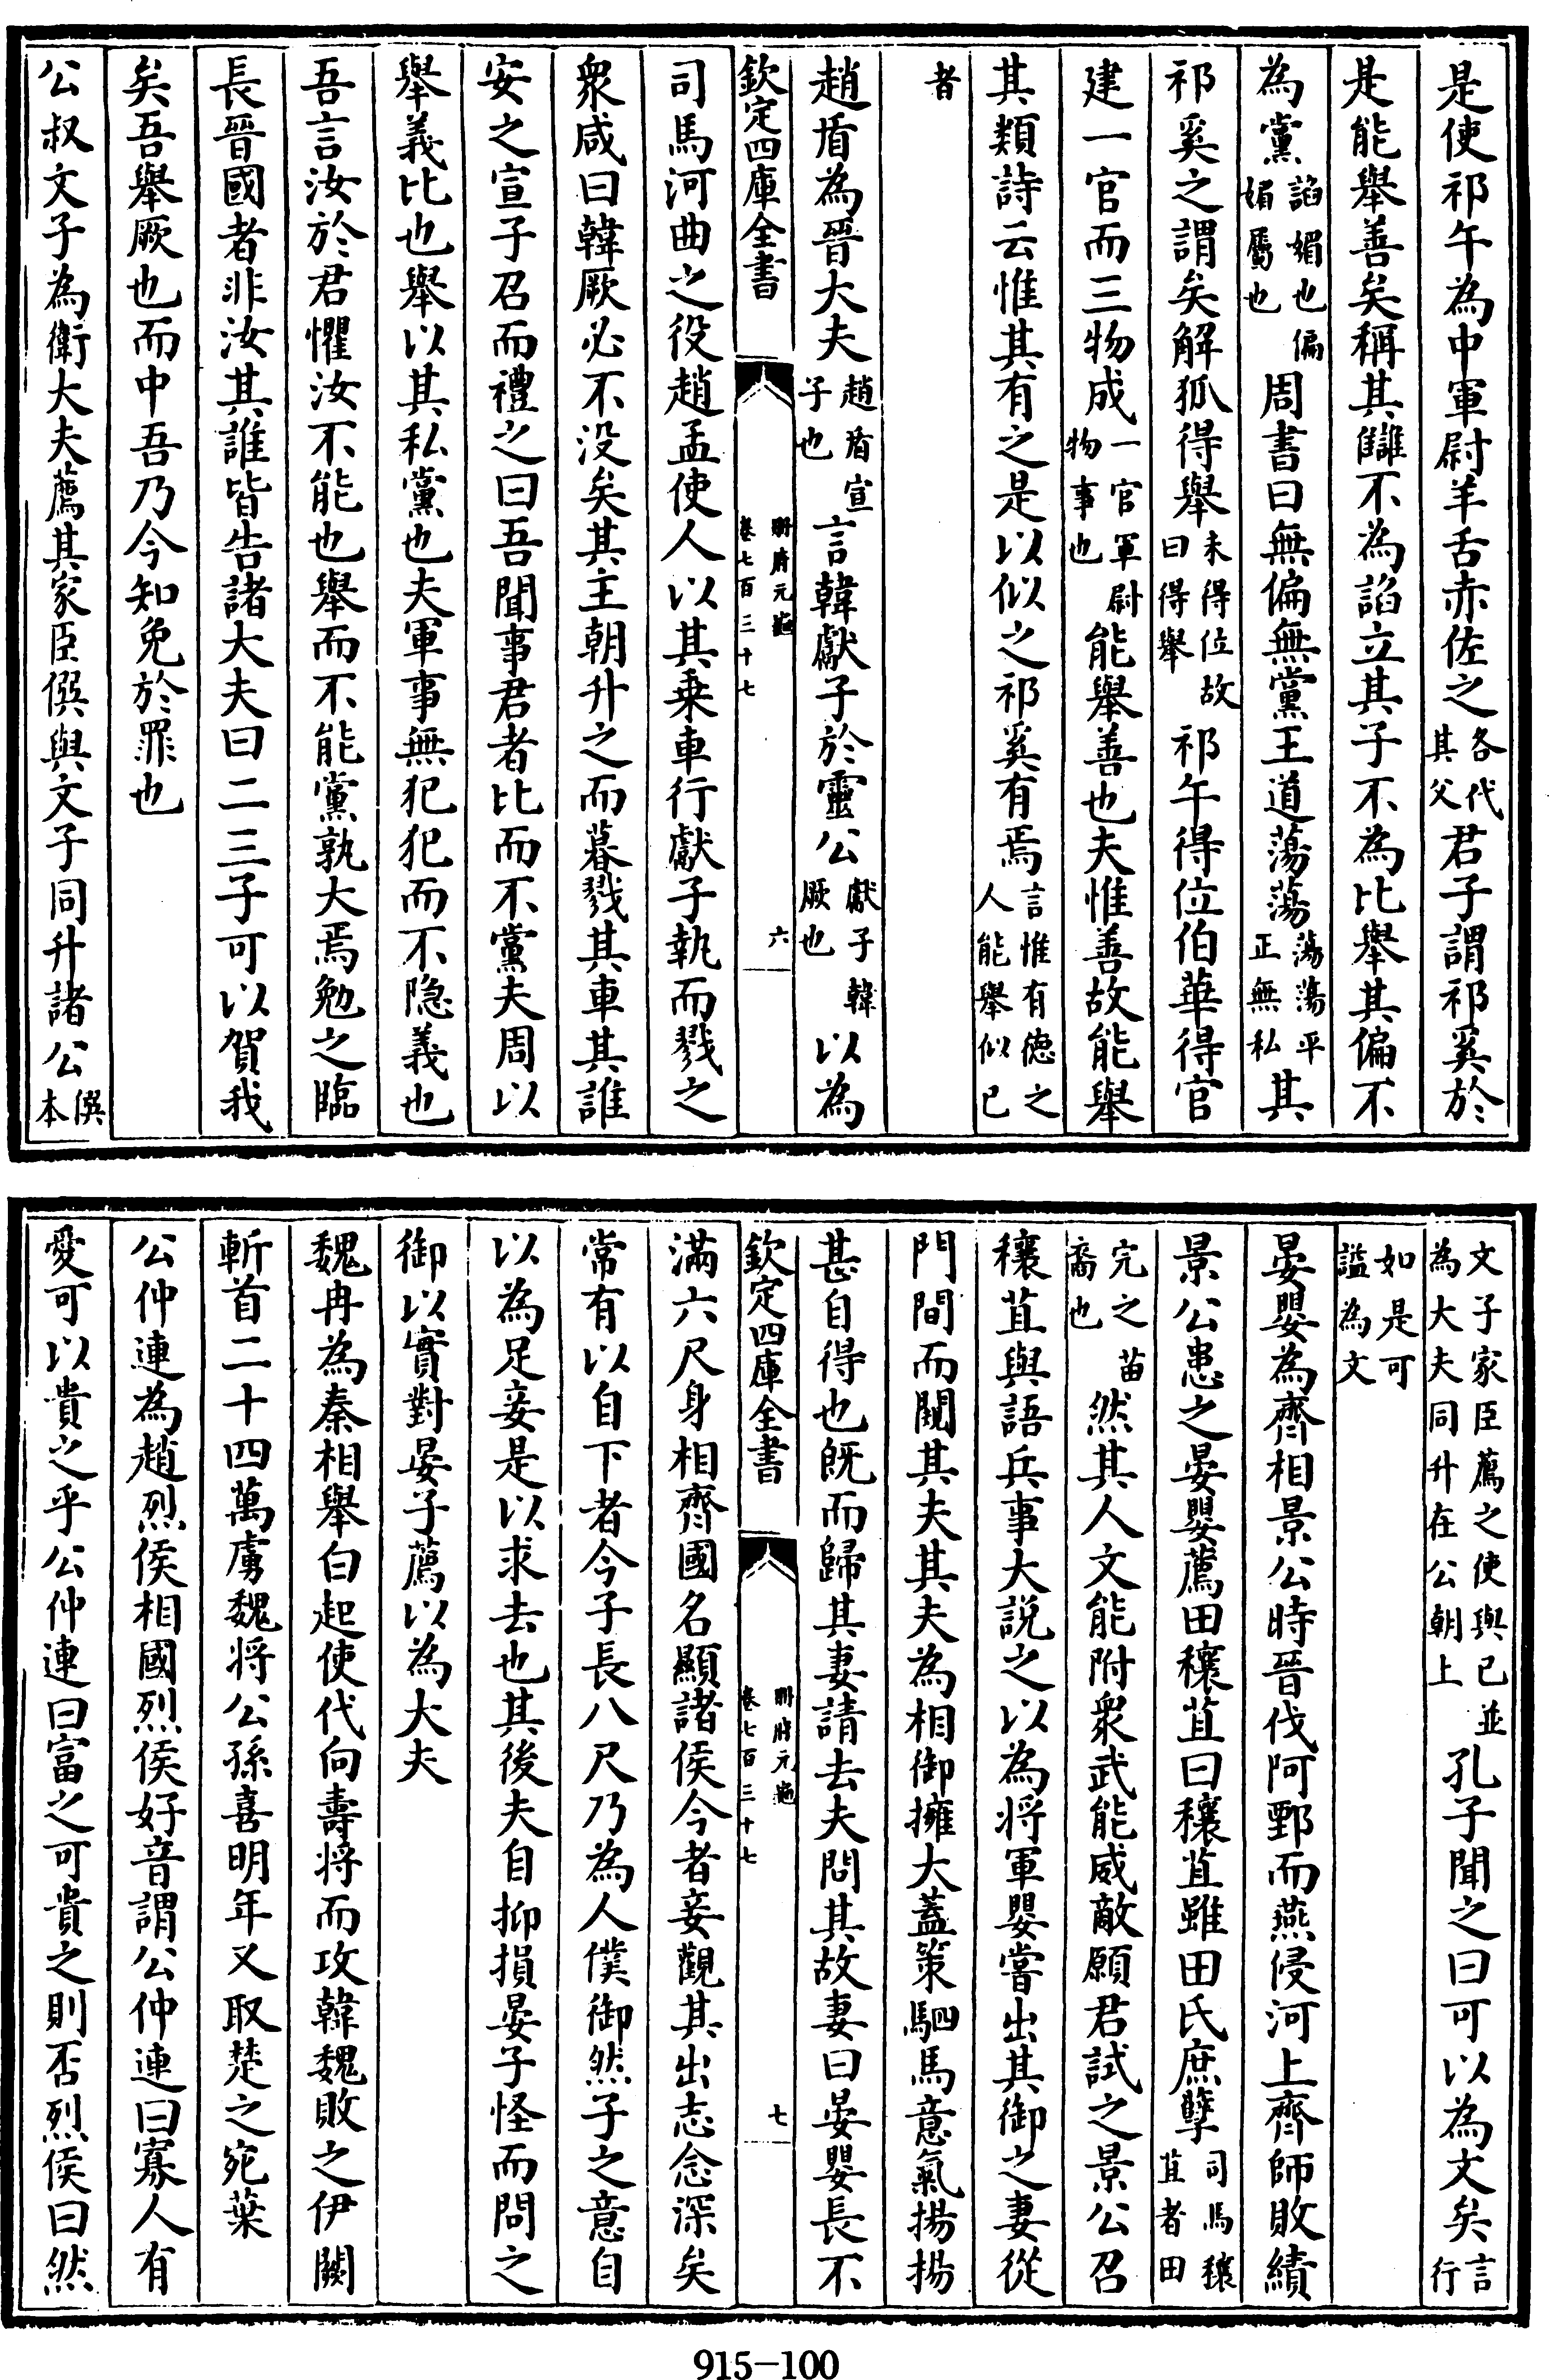 是使祁午為中軍尉羊舌赤佐之各代其父君子謂祁奚於
是能舉善矣稱其讎不為諂立其子不為比舉其偏不
為黨諂媚也偏媚屬也周書曰無偏無黨王道蕩蕩蕩蕩平正無私其
祁奚之謂矣解狐得舉未得位故曰得舉祁午得位伯華得官
建一官而三物成一官軍尉物事也能舉善也夫惟善故能舉
其類詩云惟其有之是以似之祁奚有焉言惟有徳之人能舉似已
者
趙盾為晉大夫趙盾宣子也言韓獻子於靈公獻子韓厥也以為
欽定四庫全書
冊府元龜
卷七百三十七
六
司馬河曲之役趙孟使人以其乗車行獻子執而戮之
衆咸曰韓厥必不没矣其主朝升之而暮戮其車其誰
安之宣子召而禮之曰吾聞事君者比而不黨夫周以
舉義比也舉以其私黨也夫軍事無犯犯而不隐義也
吾言汝於君懼汝不能也舉而不能黨孰大焉勉之臨
長晉國者非汝其誰皆告諸大夫曰二三子可以賀我
矣吾舉厥也而中吾乃今知免於罪也
公叔文子為衛大夫薦其家臣僎與文子同升諸公僎本
文子家臣薦之使與已並為大夫同升在公朝上孔子聞之曰可以為文矣言行
如是可諡為文
晏嬰為齊相景公時晉伐阿鄄而燕侵河上齊師敗績
景公患之晏嬰薦田穰苴曰穰苴雖田氏庶孽司馬穰苴者田
完之苗裔也然其人文能附衆武能威敵願君試之景公召
穰苴與語兵事大説之以為将軍嬰嘗出其御之妻從
門間而闚其夫其夫為相御擁大蓋策駟馬意氣揚揚
甚自得也既而歸其妻請去夫問其故妻曰晏嬰長不
欽定四庫全書
冊府元龜
卷七百三十七
七
滿六尺身相齊國名顯諸侯今者妾觀其出志念深矣
常有以自下者今子長八尺乃為人僕御然子之意自
以為足妾是以求去也其後夫自抑損晏子怪而問之
御以實對晏子薦以為大夫
魏冉為秦相舉白起使代向壽将而攻韓魏敗之伊闕
斬首二十四萬虜魏将公孫喜明年又取楚之宛葉
公仲連為趙烈侯相國烈侯好音謂公仲連曰寡人有
愛可以貴之乎公仲連曰富之可貴之則否烈侯曰然
915-100